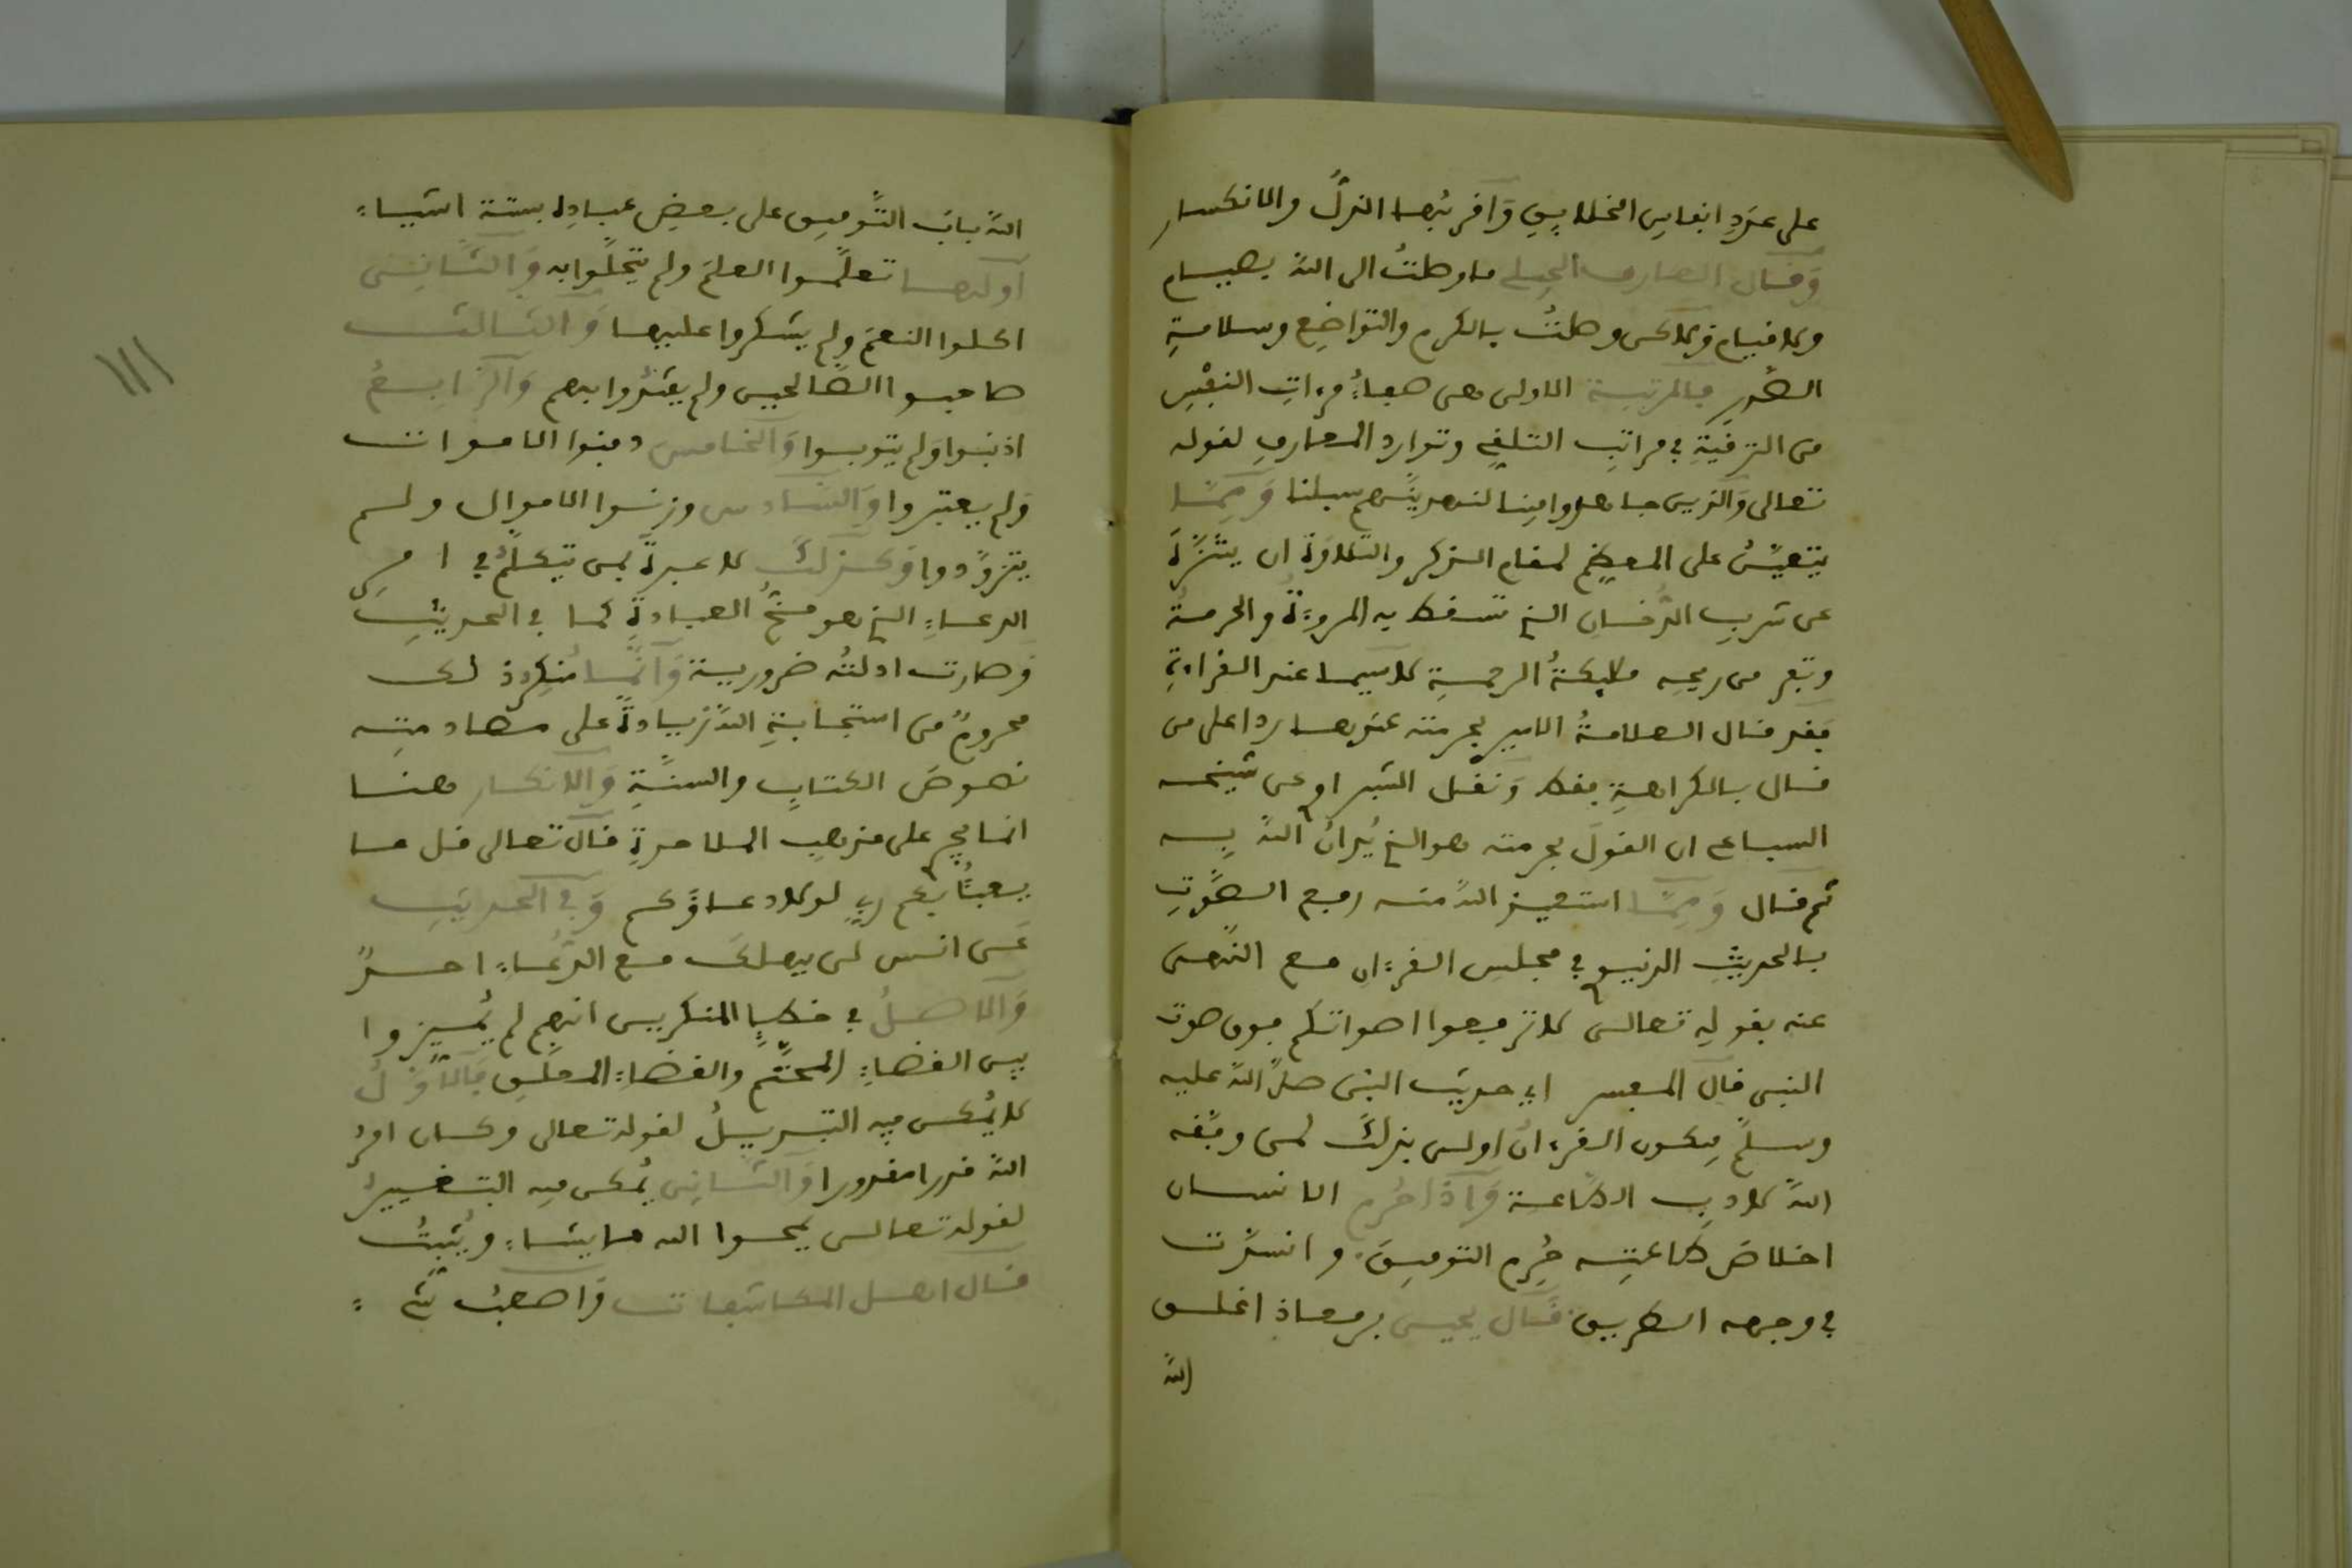 على عدد انفاس الخلايق وَاقربُها الذلُّ والانكسار
وَقال العارف الجيلي ما وصلتُ الى اللهِ بصيام
ولا قيام ولاكن وصلتُ بالكرم والتواضع وسلامةِ
الصدر فالمرتبة الاولى هى صفاءُ مرءاتِ النفس
من الترقيّةِ في مراتب التلقي وتوارد المعارف لقوله
تعالى وَالذين جاهدوا فينا لنهدينّهم سبلنا وَمِمّا
يتعيّنُ على المعظم لمقام الذكر والتلاوة ان يتنزّهَ
عن شرب الدُّخان الذي تسقط به المروءةُ والحرمةُ
وتفر من ريحه ملايكةُ الرحمةِ لاسيما عند القراءةِ
فقد قال العلامةُ الامير بحرمته عندها ردا على من
قال بالكراهةِ فقط وَنقل الشبراوي عن شيخه
السباعي ان القولَ بحرمته هو الذي يُدانُ اللهُ بِه
ثم قال وَمِمّا استعيذ اللهَ منه رفع الصّوتِ
بالحديثِ الدنيوي في مجلس القرءان مع النّهى
عنه بقوله تعالى لا ترفعوا اصواتكم فوق صوت
النبى قال المفسر اي حديث النبى صلّا الله عليه
وسلّم فيكون القرءانُ اولى بذلكَ لمن وفّقه
اللهُ لادب الطّاعة وَاذا حُرم الانسان
اخلاصَ طاعتِه حُرِم التوفيقَ وانسدّت
في وجهه الطريق قال يحيى بن معاذ اغلق
اللهُ
اللهُ بابَ التّوفيق على بعضِ عبادِهِ بستة اشياء
اولها تعلّموا العلمَ ولم يتحلّوا به وَالثّاني
اكلوا النعمَ ولم يشكروا عليها وَالثالث
صاحبوا الصّالحين ولم يقتدوا بهم وَالرّابعُ
اذنبوا وَلم يتوبوا وَالخامس دفنوا الاموات
وَلم يعتبروا وَالسّادس ورثوا الاموال ولم
يتزوّدوا وَكذلكَ لا عبرةَ بمن تكلّمَ في امرِ
الدعاءِ الذي هو مخُّ العبادةِ كما في الحديثِ
وَصارت ادلتُه ضرورية وَانّما مُنكِرهُ لك
محرومٌ من استجابةِ اللهِ زيادةً على مصادمتِه
نصوصَ الكتابِ والسنّةِ وَالانكار هنا
انما يجي على مذهبِ الملاحدةِ قال تعالى قل ما
يعبئُا بكم ربي لولا دعاؤكم وَفي الحديثِ
عَن انس لن يهلكَ مع الدّعاءِ احدٌ
وَالاصلُ في خطإِ المنكرين انهم لم يُميزوا
بين القضاءِ المحتّم والقضاءِ المعلّقِ فالاوّلُ
لا يُمكن فيه التبديلُ لقوله تعالى وكان امرُ
اللهِ قدرا مقدورا وَالثّاني يُمكن فيه التغييرُ
لقوله تعالى يمحوا الله ما يشاء ويُثبتُ
قال اهل المكاشفات وَاصعبُ شَي